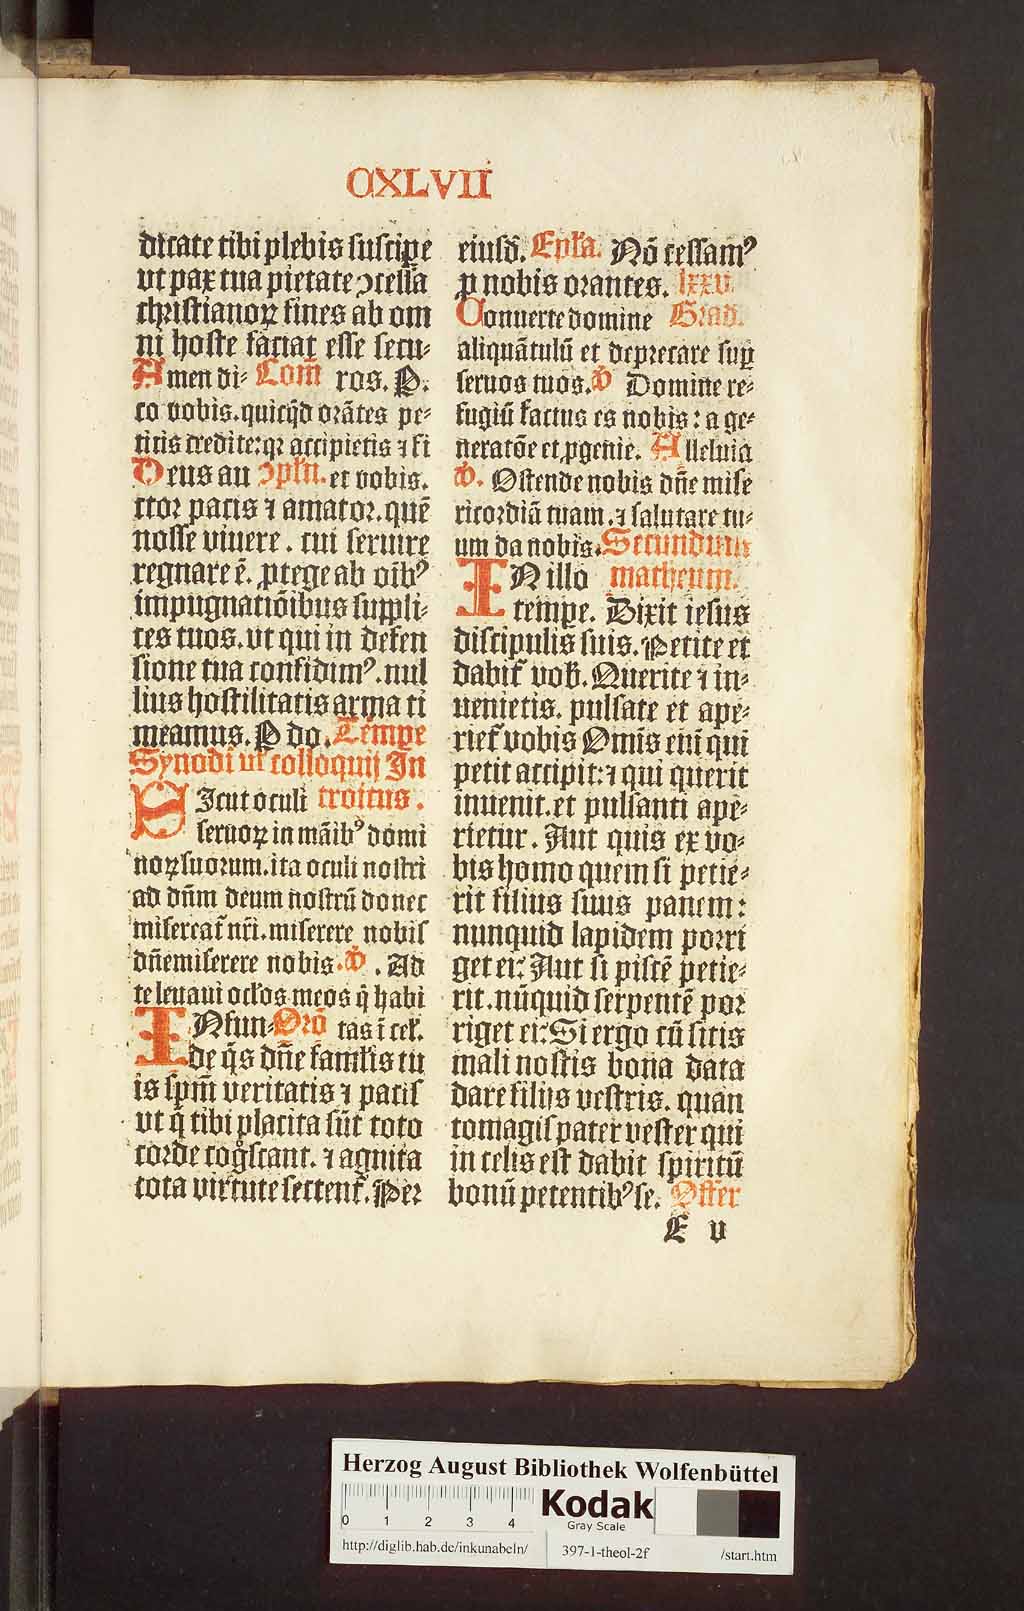 CXLVII
dicate tibi plebis suscipe
vt pax tua pietate ↄcessa
christianoꝝ fines ab om
ni hoste faciat esse secu⸗
Amen di⸗ Com̄ ros. P.
co vobis. quicq̇d orātes pe⸗
titis credite: qꝛ accipietis ⁊ fi
Deus au ↄplñ. et vobis.
ctor pacis ⁊ amator. quē
nosse viuere. cui seruire
regnare ē. ꝓtege ab oīb⁹
impugnatiōibus suppli⸗
ces tuos. vt qui in defen
sione tua confidim⁹. nul
lius hostilitatis arma ti
meamus. P do. Tēmpe
Synodi vel colloquij In
Sicut oculi troitus.
seruoꝝ in māib⁹ domi
noꝝ suorum. ita oculi nostri
ad dñm deum nostrū donec
misereat̄ nr̄i. miserere nobis
dñe miserere nobis. ℣. Ad
te leuaui ocl̄os meos q̇ habi
INfun⸗ Orō tas ī cel̄.
de q̄s dñe faml̄is tu
is sp̄m veritatis ⁊ pacis
vt q̄ tibi placita sūt toto
corde cog̊scant. ⁊ agnita
tota virtute sectent̄. Per
eiusd̄. Epl̄a. Nō cessam⁹
ꝓ nobis orantes. lxxv.
Conuerte domine Grad.
aliquātulū et deprecare suꝑ
seruos tuos. ℣ Domine re⸗
fugiū factus es nobis: a ge⸗
neratōe et ꝓgenie. Alleluia
℣. Ostende nobis dñe mise
ricordiā tuam. ⁊ salutare tu⸗
um da nobis. Secundum
IN illo matheum.
tempe. Dixit iesus
discipulis suis. Petite et
dabit̄ vob̄. Querite ⁊ in⸗
uenietis. pulsate et ape⸗
riet̄ vobis Omīs eni qui
petit accipit: ⁊ qui querit
inuenit. et pulsanti ape⸗
rietur. Aut quis ex vo⸗
bis homo quem si petie⸗
rit filius suus panem:
nunquid lapidem porri
get ei: Aut si piscē petie⸗
rit. nūquid serpentē por
riget ei: Si ergo cū sitis
mali nostis bona data
dare filijs vestris. quan
tomagis pater vester qui
in celis est dabit spiritū
bonū petentib⁹ se. Offer
E v
Herzog August Bibliothek Wolfenbüttel
0 1 2 3 4
Kodak
Gray Scale
http://diglib.hab.de/inkunabeln/ 397-1-theol-2f /start.htm